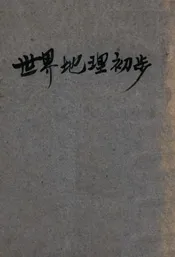 世界地理初步